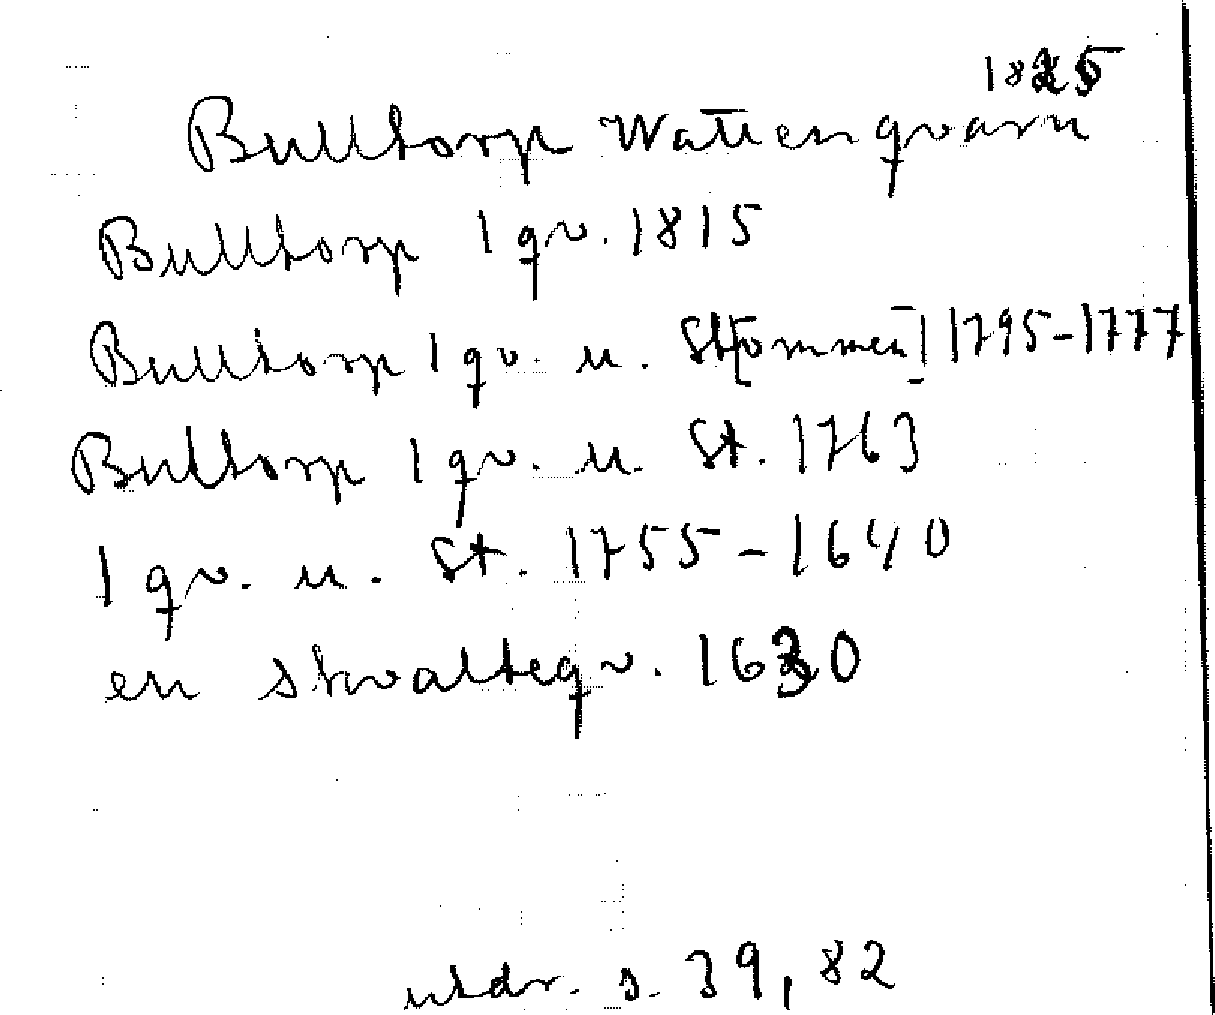 1825
Bulltorp Wattenqvarn
Bulltorp 1 qv. 1815
Bulltorp 1 qv. u. St[ommen] 1795-1777
Bulltorp 1 qv. u. St. 1763
1 qv. u. St. 1755-1640
en skvalteqv. 1630
utdr. s. 39, 82